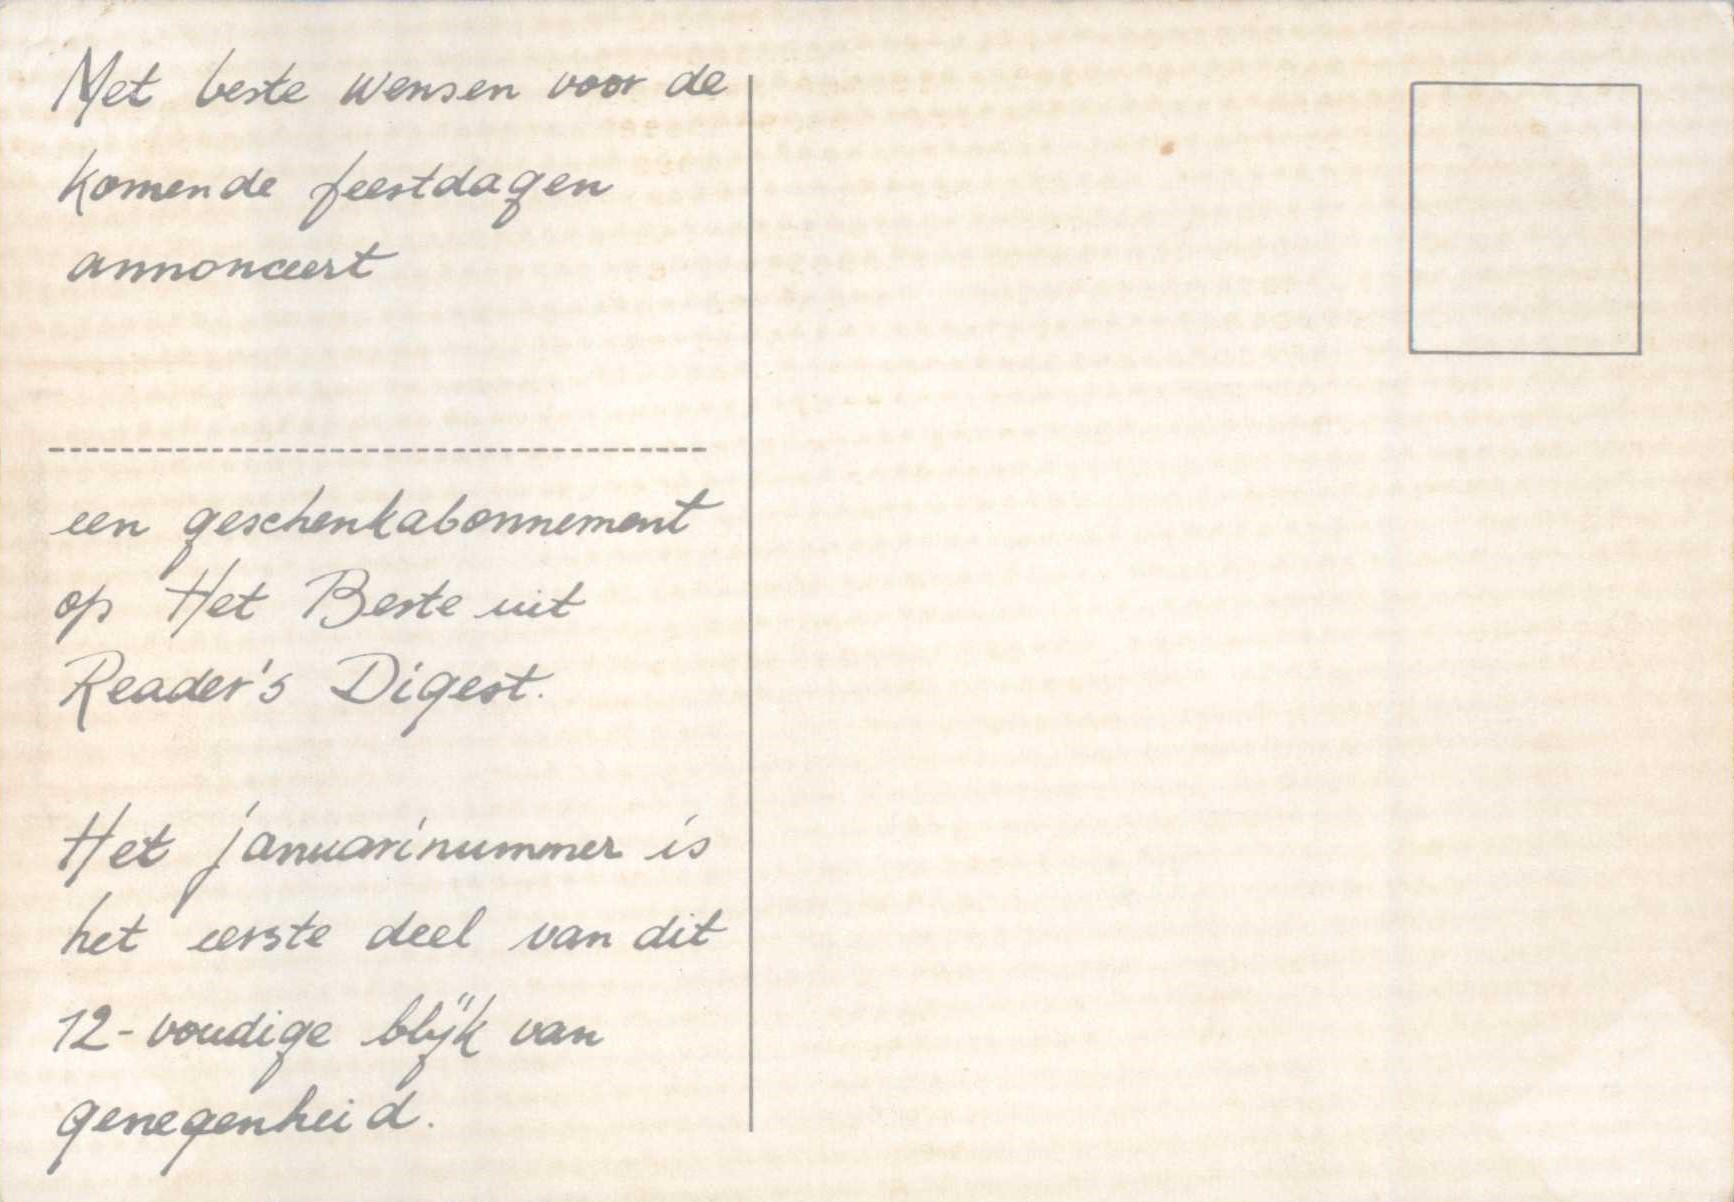 Met beste wensen voor de
komende feestdagen
annonceert
een geschenkabonnement
op Het Beste uit
Reader's Digest.
Het januarinummer is
het eerste deel van dit
12-voudige blijk van
genegenheid.